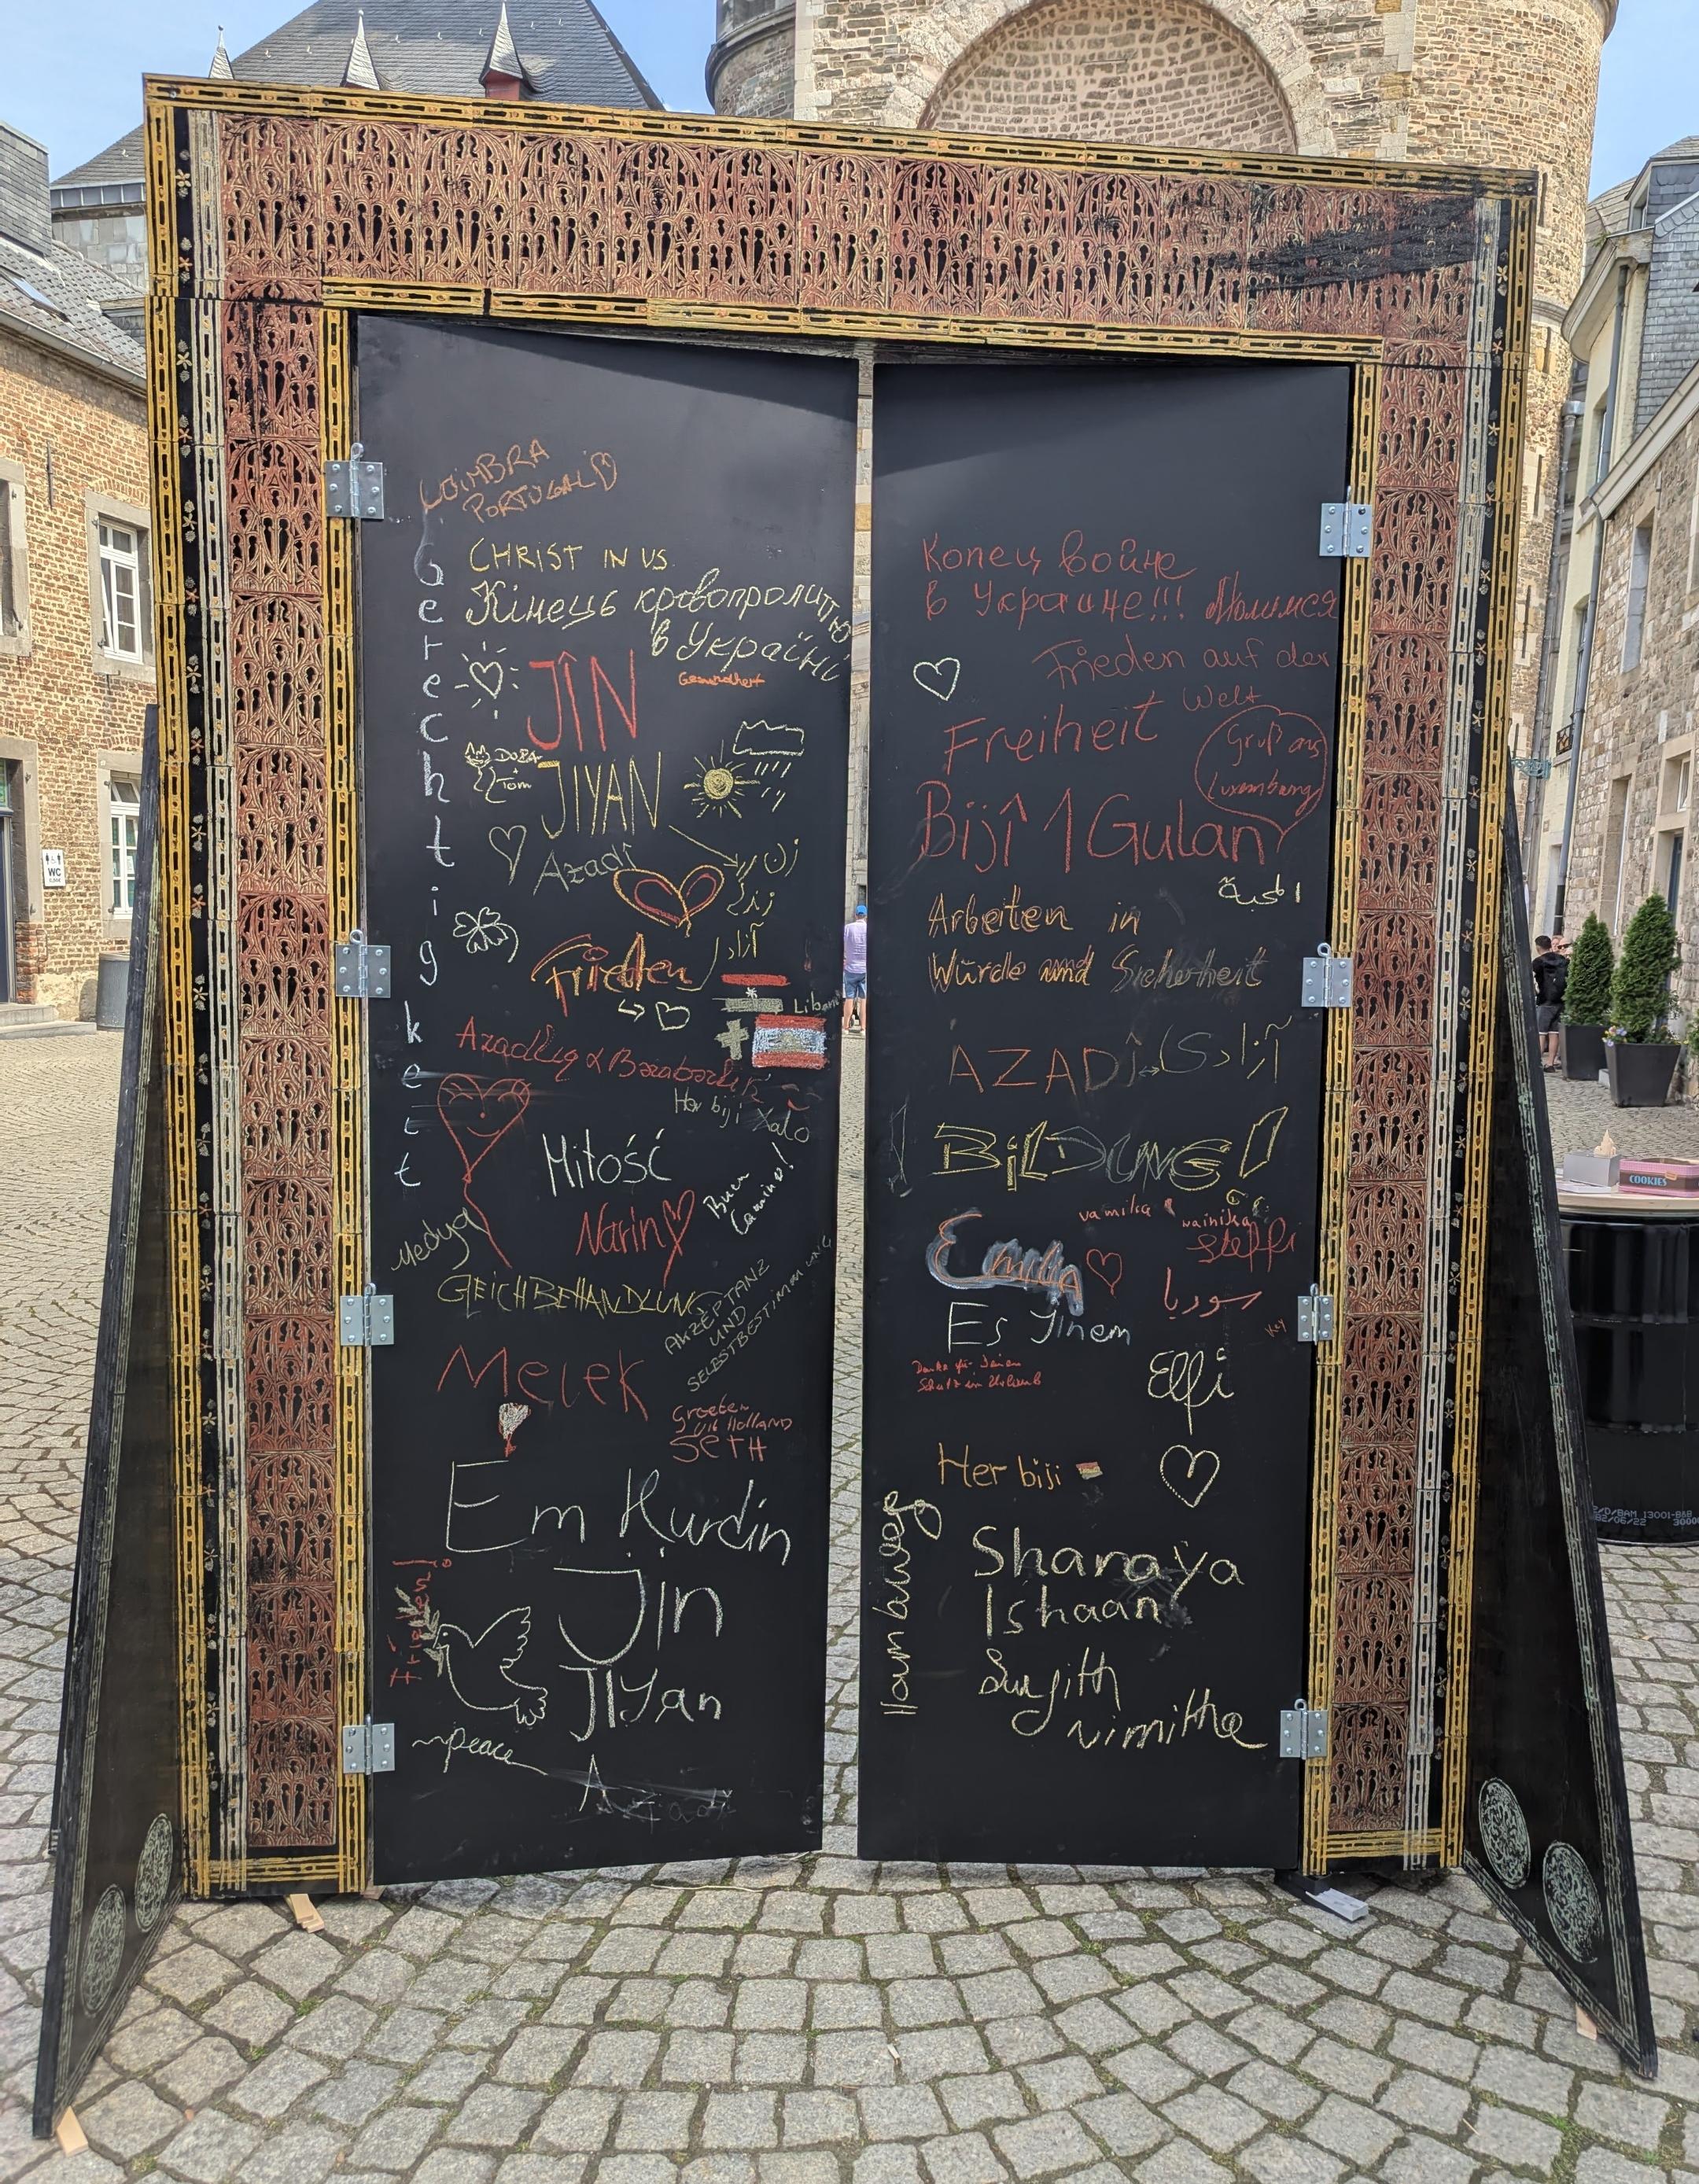 COIMBRA
PORTUGAL
Gerechtigkeit
CHRIST IN US.
Кінець кровопролиттю
в Україні
Gesundheit
JÎN
DORA
+
Tom
JIYAN
Azadî
زن
Frieden
Libanon
Azadlıq &
Her biji Xalo
Miłość
Narin
Buen
Camino!
Medya
GLEICHBEHANDLUNG
AKZEPTANZ
UND
SELBSTBESTIMMUNG
Melek
Groeten
uit Holland
SETH
Em Kurdin
Jin
JIYan
Frieden!
peace
Azadî
Конец войне
в Украине!!! Молимся
Frieden auf der
Welt
Freiheit
Gruß aus
Luxemburg
Bijî 1 Gulan
Arbeiten in
Würde und Sicherheit
AZADÎ
BILDUNG!
vamika
vainika
steffi
Emilia
سوريا
Es
Elfi
Danke für deinen
Her biji
Shanaya
Ishaan
Sujith
Nimitha
WC
COOKIES
/D/BAM 13001-B&B